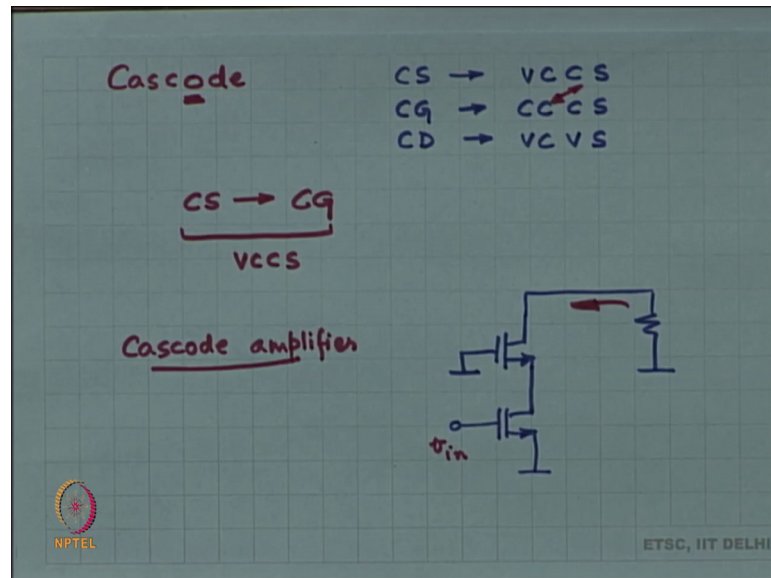 Cascode
CS → VCCS
CG → CCCS
CD → VCVS
CS → CG
VCCS
Cascode amplifier
vin
NPTEL
ETSC, IIT DELHI